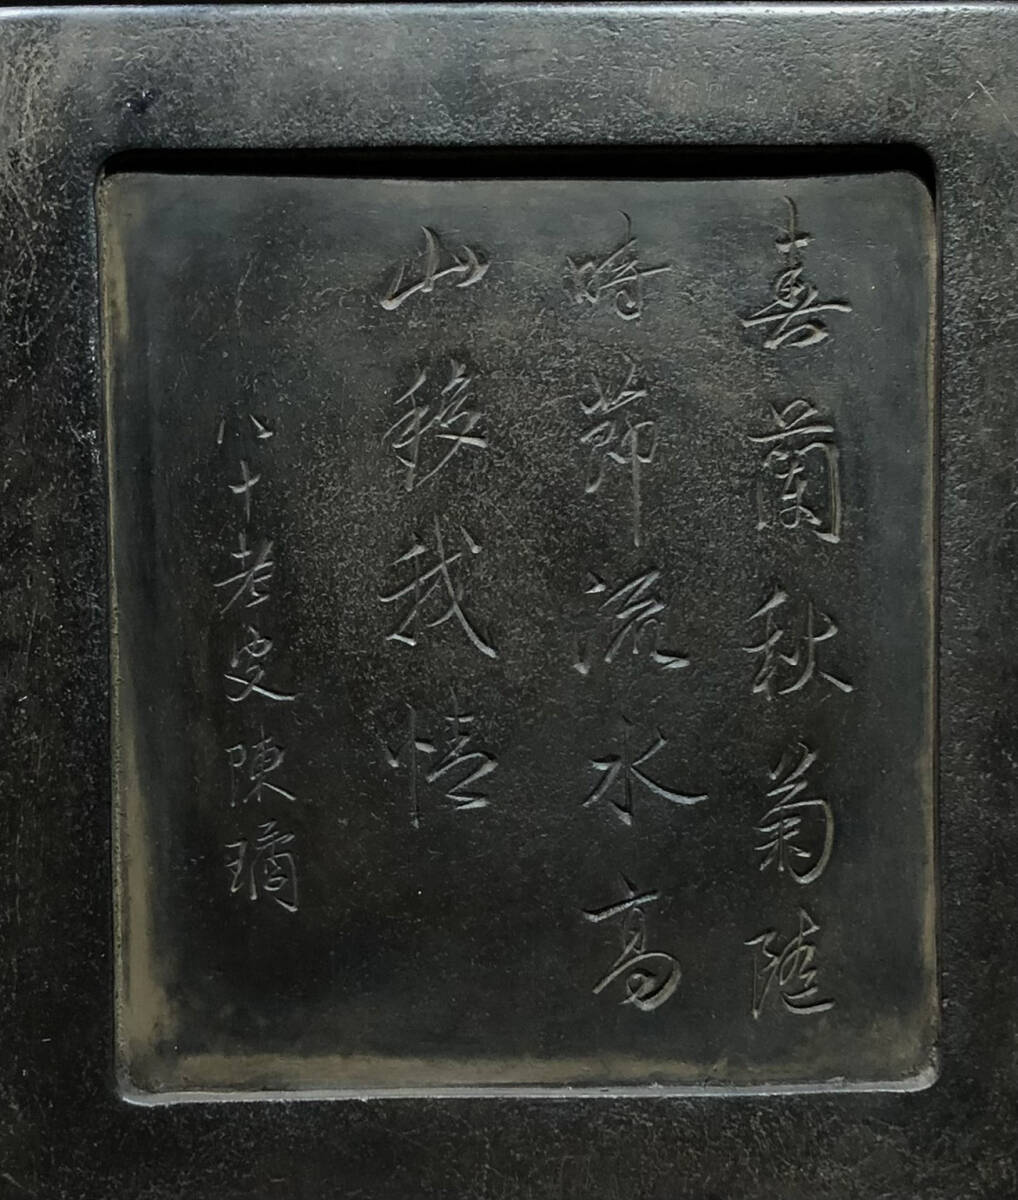 喜蘭秋菊隨
時節流水高
山移我情
八十老叟陳璚